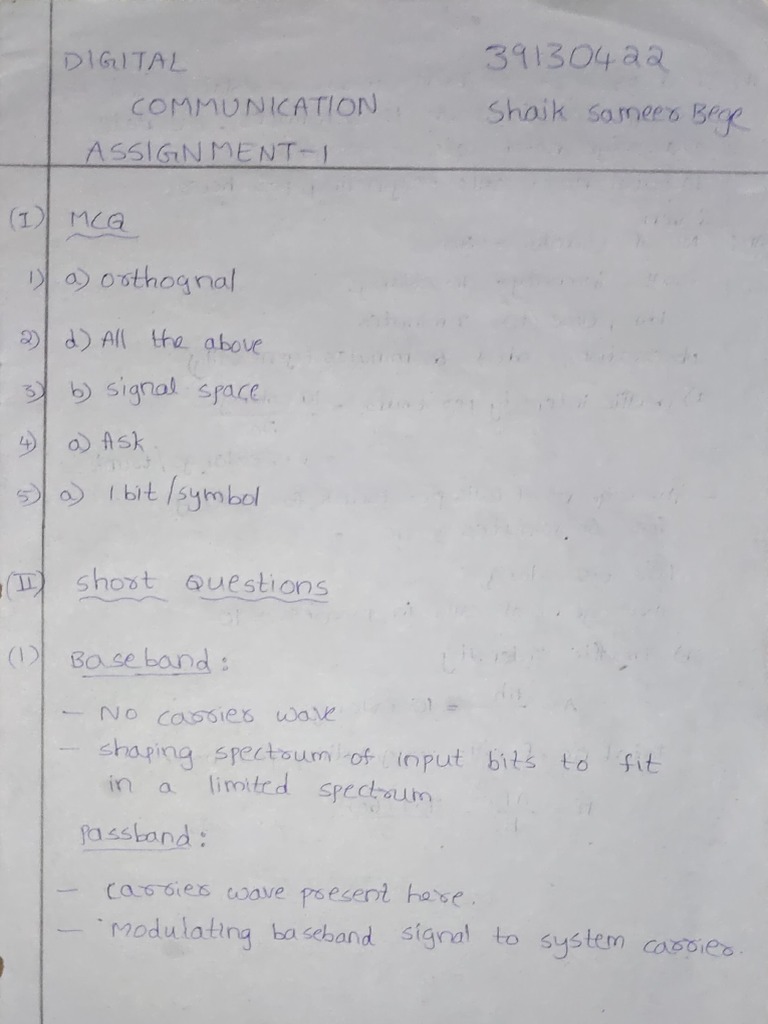 DIGITAL 39130422
COMMUNICATION Shaik Sameer Bege
ASSIGNMENT-1
(I) MCQ
1) a) orthognal
2) d) All the above
3) b) signal space
4) a) ASK
5) a) 1 bit/symbol
(II) short Questions
(1) Baseband:
- No carrier wave
- shaping spectrum of input bits to fit
in a limited spectrum
passband:
- carrier wave present here.
- modulating baseband signal to system carrier.